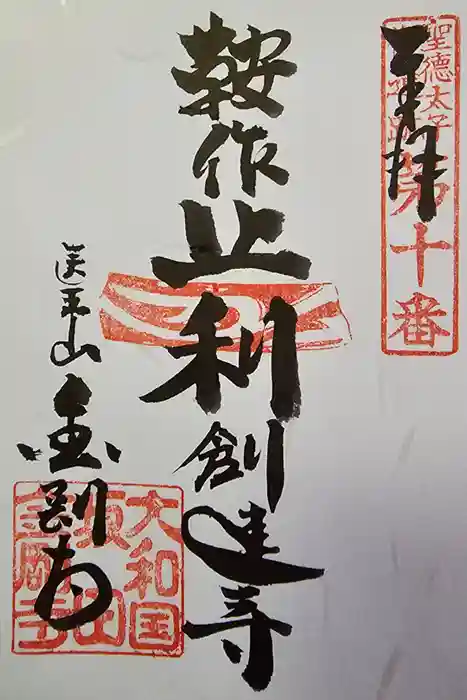 聖徳太子
第十番
奉拝
鞍作止利創建寺
山 金剛寺
大和国
坂田
金剛寺